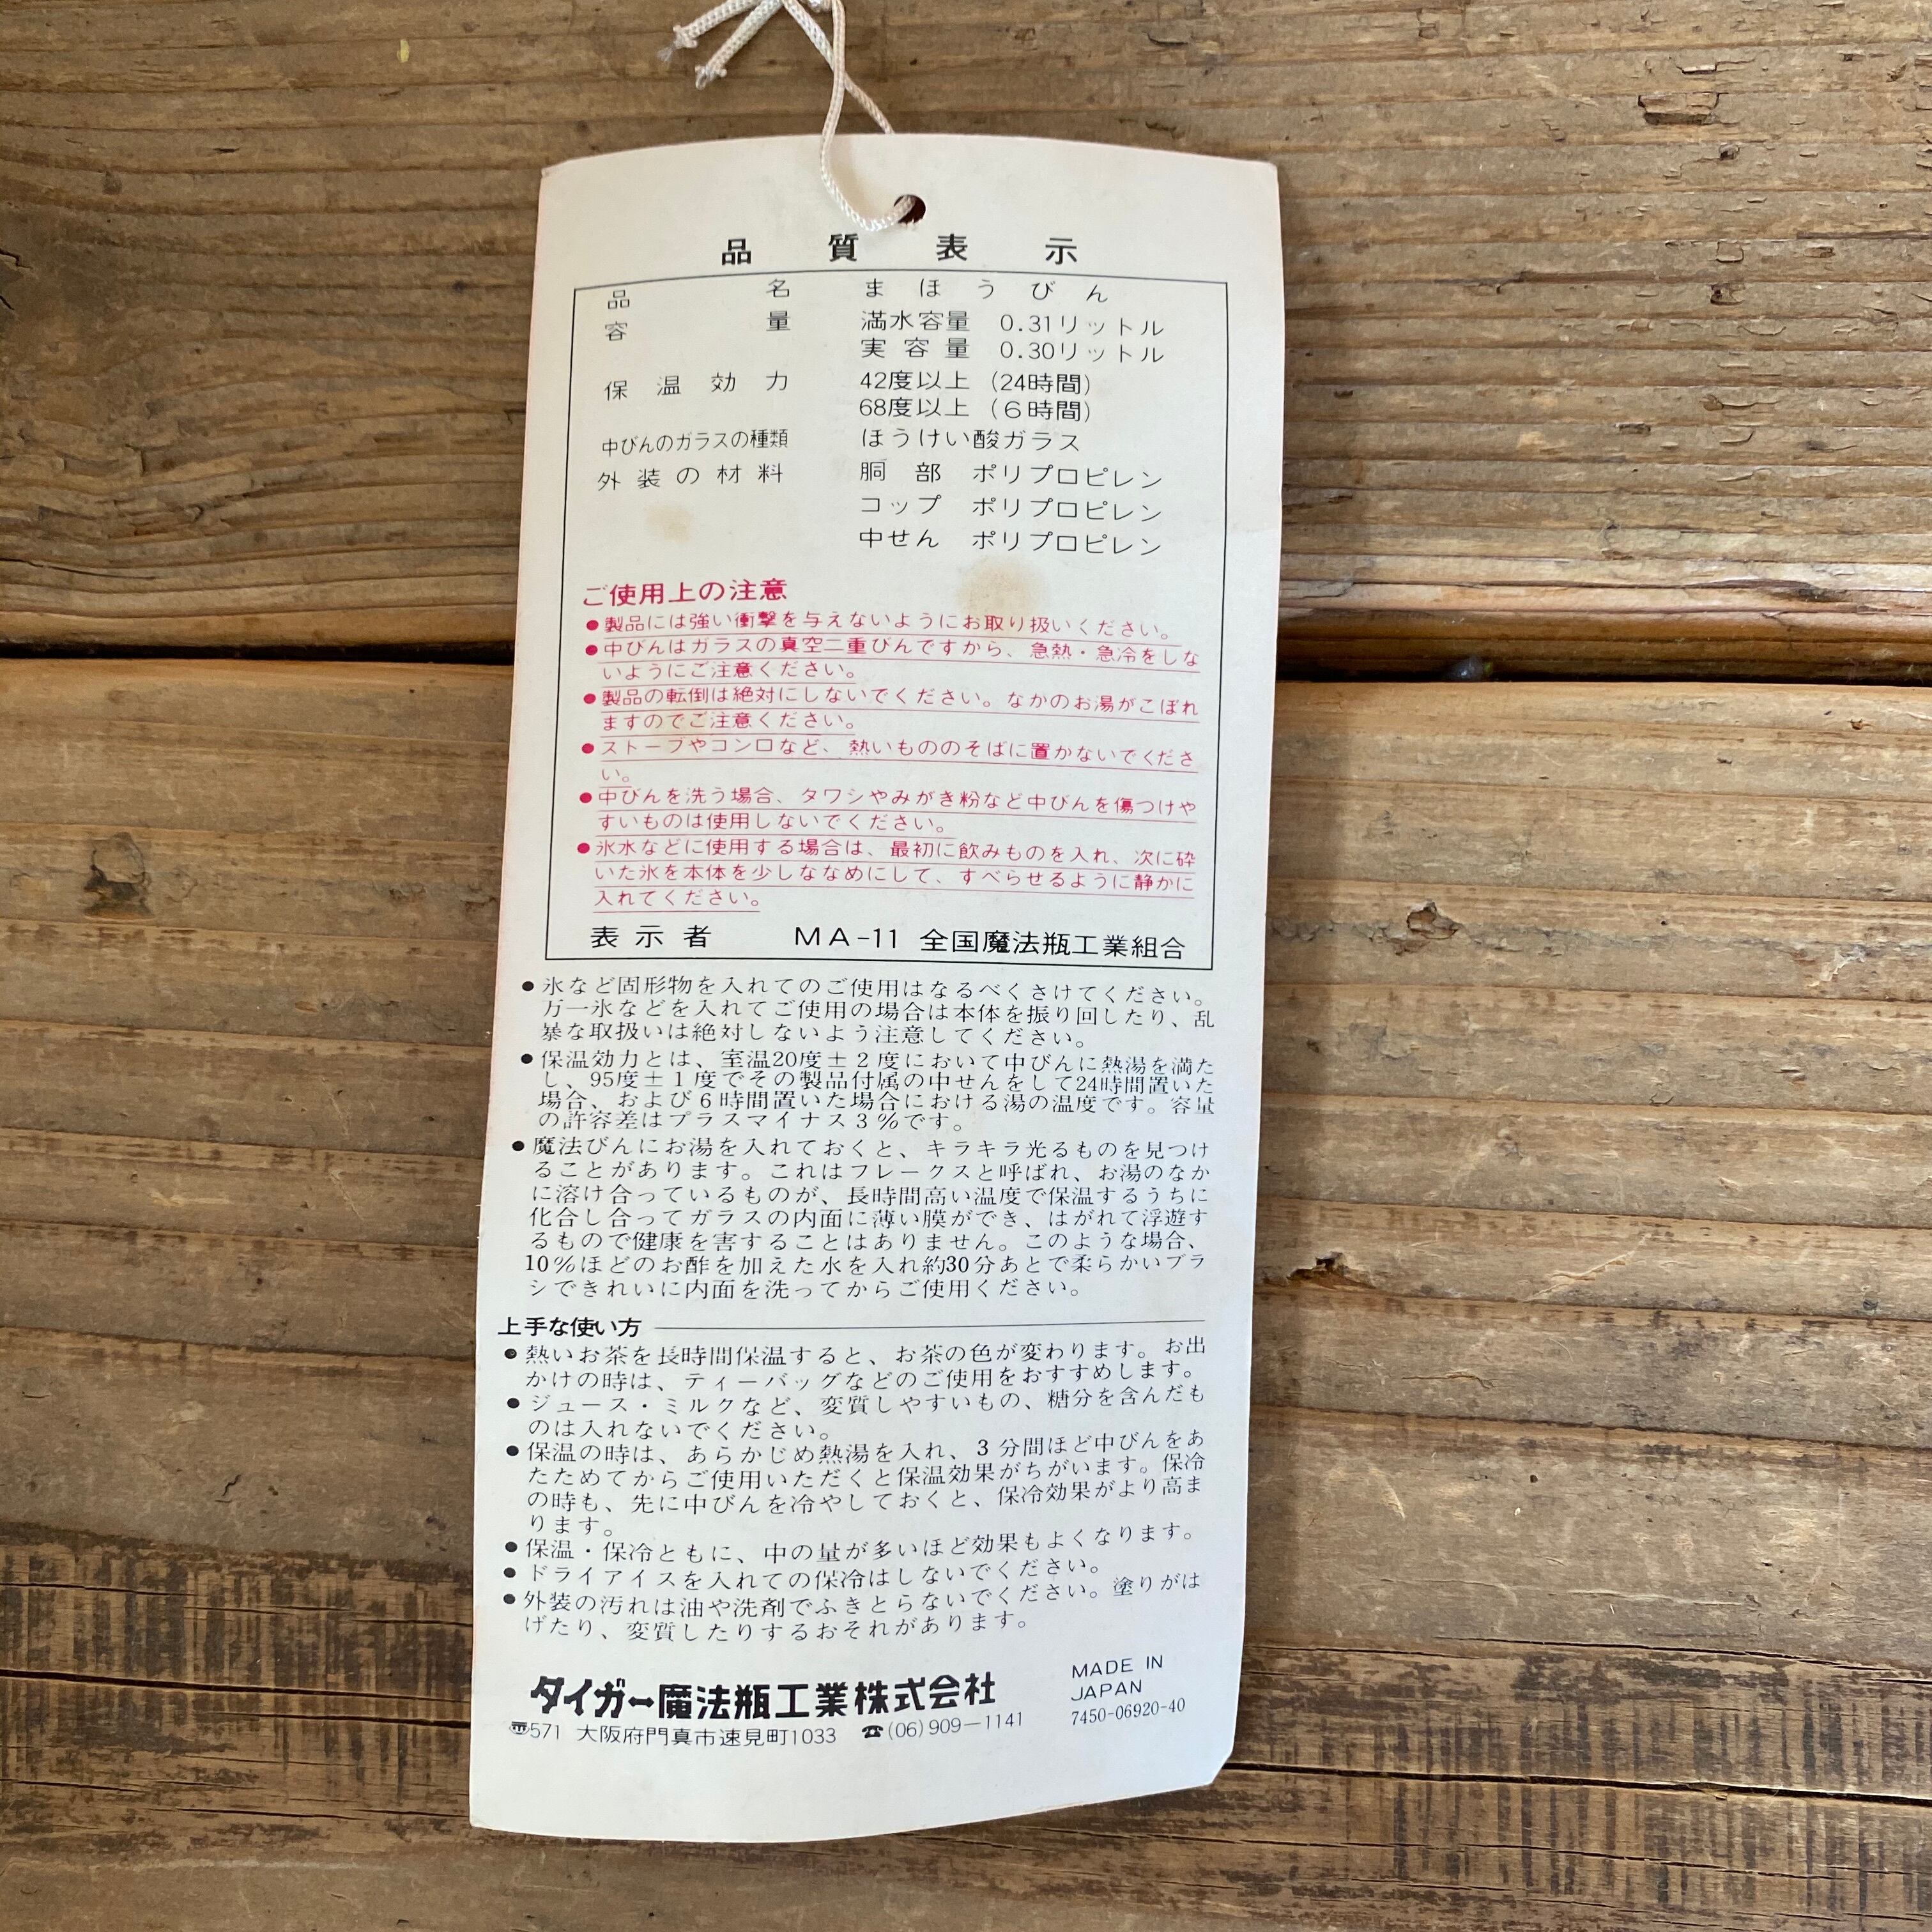 品質表示
品名 まほうびん
容量 満水容量 0.31リットル
実容量 0.30リットル
保温効力 42度以上 (24時間)
68度以上 (6時間)
中びんのガラスの種類 ほうけい酸ガラス
外装の材料 胴部 ポリプロピレン
コップ ポリプロピレン
中せん ポリプロピレン
ご使用上の注意
●製品には強い衝撃を与えないようにお取り扱いください。
●中びんはガラスの真空二重びんですから、急熱・急冷をしな
いようにご注意ください。
●製品の転倒は絶対にしないでください。なかのお湯がこぼれ
ますのでご注意ください。
●ストーブやコンロなど、熱いもののそばに置かないでくださ
い。
●中びんを洗う場合、タワシやみがき粉など中びんを傷つけや
すいものは使用しないでください。
●氷水などに使用する場合は、最初に飲みものを入れ、次に砕
いた氷を本体を少しななめにして、すべらせるように静かに
入れてください。
表示者 MA-11 全国魔法瓶工業組合
●氷など固形物を入れてのご使用はなるべくさけてください。
万一氷などを入れてご使用の場合は本体を振り回したり、乱
暴な取扱いは絶対しないよう注意してください。
●保温効力とは、室温20度±2度において中びんに熱湯を満た
し、95度±1度でその製品付属の中せんをして24時間置いた
場合、および6時間置いた場合における湯の温度です。容量
の許容差はプラスマイナス3%です。
●魔法びんにお湯を入れておくと、キラキラ光るものを見つけ
ることがあります。これはフレークスと呼ばれ、お湯のなか
に溶け合っているものが、長時間高い温度で保温するうちに
化合し合ってガラスの内面に薄い膜ができ、はがれて浮遊す
るもので健康を害することはありません。このような場合、
10%ほどのお酢を加えた水を入れ約30分あとで柔らかいブラ
シできれいに内面を洗ってからご使用ください。
上手な使い方
●熱いお茶を長時間保温すると、お茶の色が変わります。お出
かけの時は、ティーバッグなどのご使用をおすすめします。
●ジュース・ミルクなど、変質しやすいもの、糖分を含んだも
のは入れないでください。
●保温の時は、あらかじめ熱湯を入れ、3分間ほど中びんをあ
たためてからご使用いただくと保温効果がちがいます。保冷
の時も、先に中びんを冷やしておくと、保冷効果がより高ま
ります。
●保温・保冷ともに、中の量が多いほど効果もよくなります。
●ドライアイスを入れての保冷はしないでください。
●外装の汚れは油や洗剤でふきとらないでください。塗りがは
げたり、変質したりするおそれがあります。
タイガー魔法瓶工業株式会社
〠571 大阪府門真市速見町1033 ☎(06)909-1141
MADE IN
JAPAN
7450-06920-40